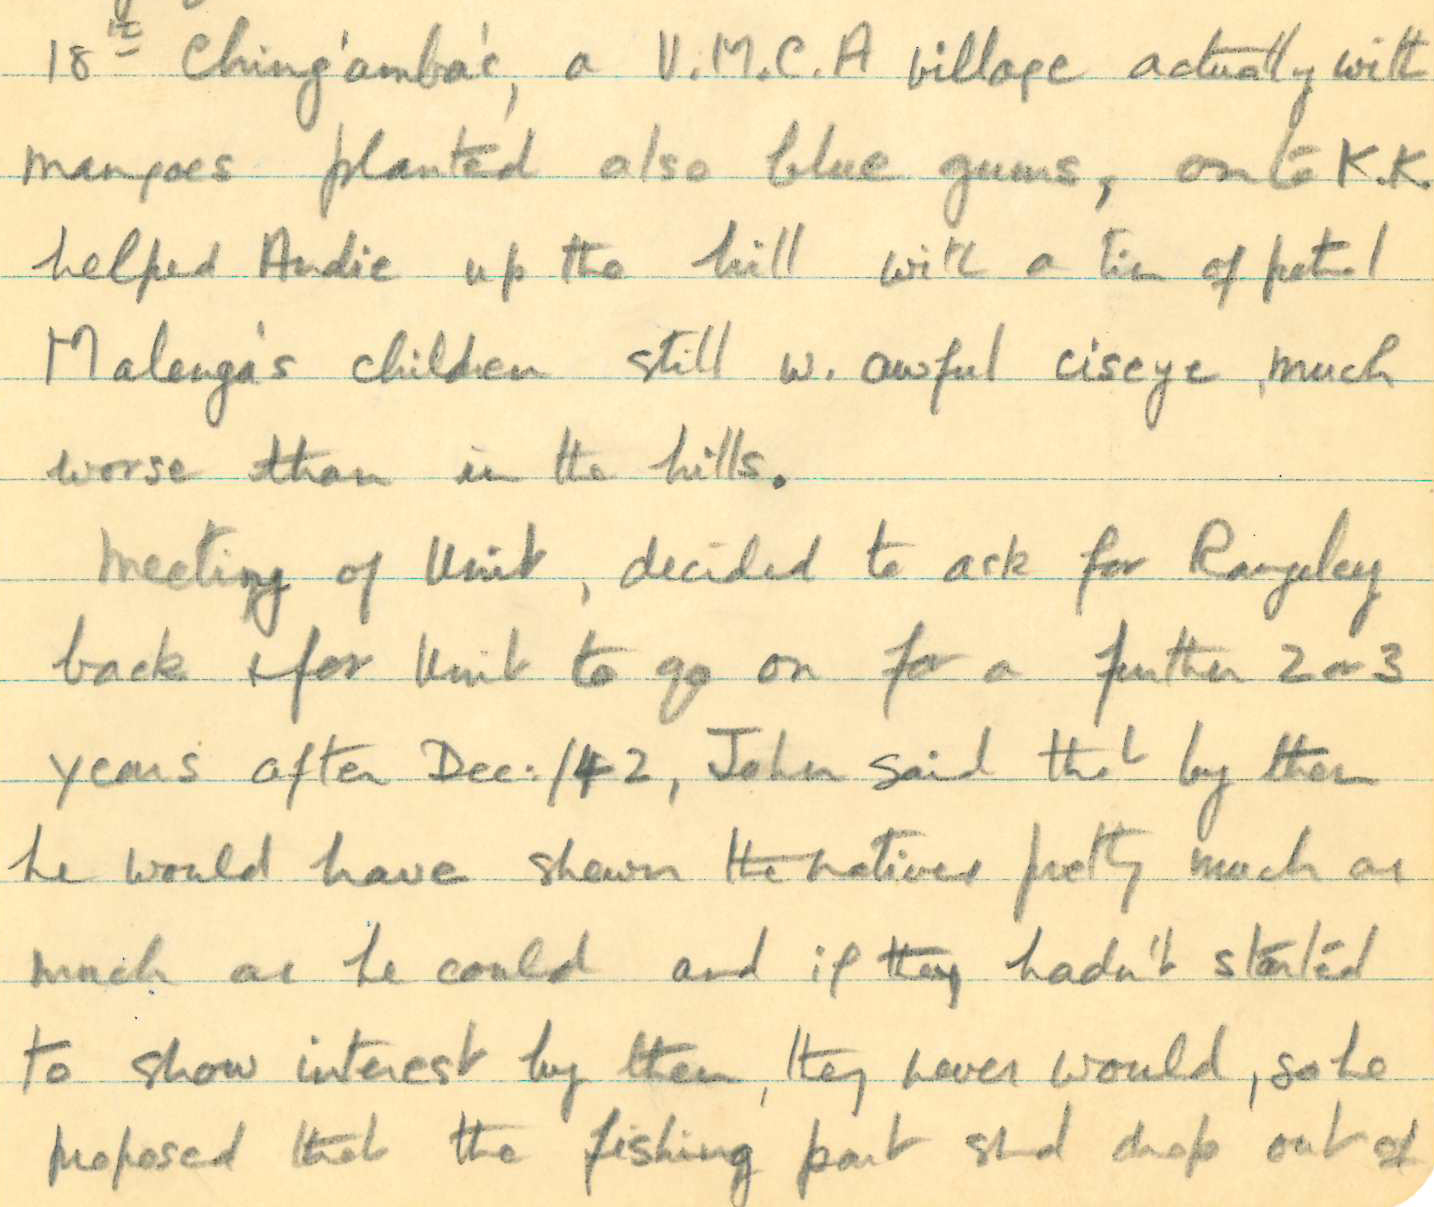 18th Ching'amba's, a U.M.C.A village actually with
mangoes planted also blue gums, on to K.K.
helped Audie up the hill with a tin of petrol
Malenga's children still w. awful ciseye much
worse than in the hills.
Meeting of Unit, decided to ask for Rangeley
back & for Unit to go on for a further 2 or 3
years after Dec: /42, John said that by then
he would have shewn the natives pretty much as
much as he could and if they hadn't started
to show interest by then, they never would, so he
proposed that the fishing part shd drop out of